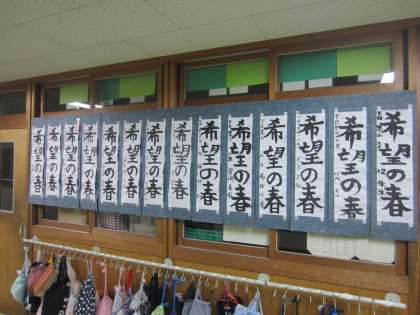 希望の春
希望の春
希望の春
希望の春
希望の春
希望の春
希望の春
希望の春
希望の春
希望の春
希望の春
希望の春
希望の春
希望の春